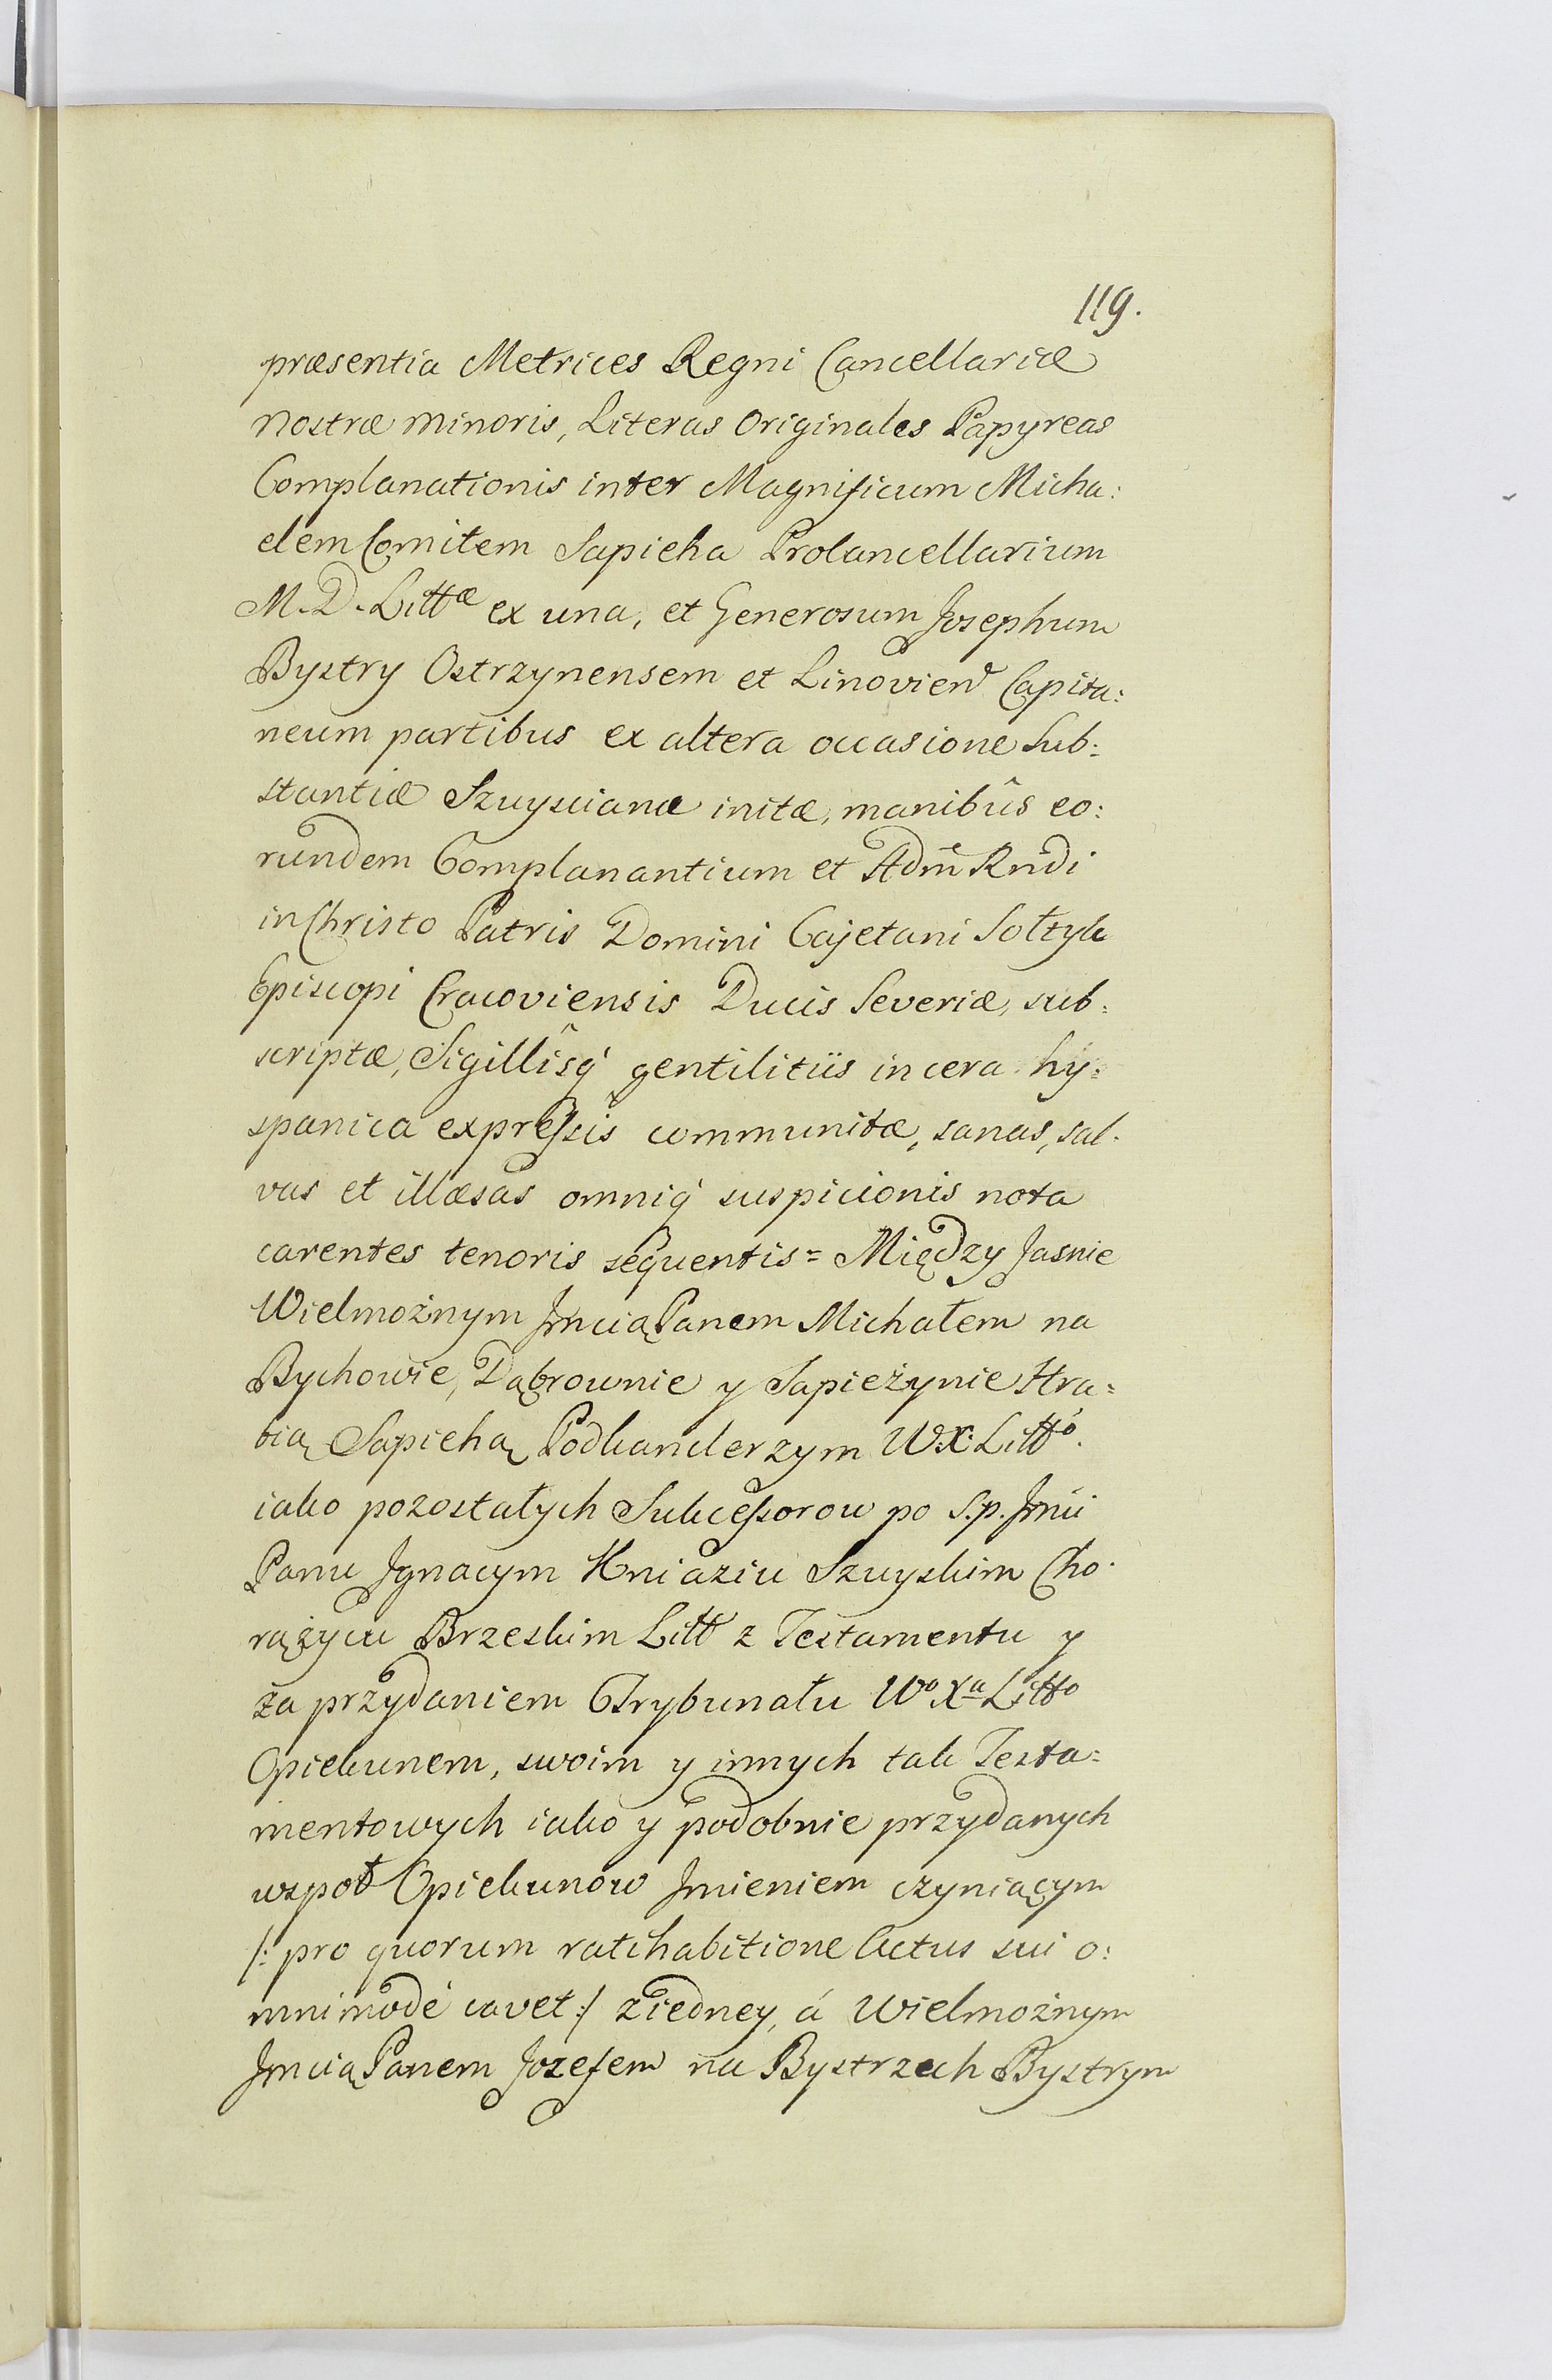 119.
præsentia Metrices Regni Cancellariæ
nostræ minoris, Literas Originales Papyreas
Complanationis inter Magnificum Micha:
elem Comitem Sapieha ProCancellarium
M. D. Littæ ex una, et Generosum Josephum
Bystry Ostrzynensem et Linovien Capita:
neum partibus ex altera occasione Sub:
stantiæ Szuyscianæ initæ, manibûs eo:
rundem Complanantium et Adm̃ Rñdi
in Christo Patris Domini Cajetani Sołtyk
Episcopi Cracoviensis Ducis Severiæ, sub:
scriptæ, Sigillîsq́ gentilitiis in cera hy:
spanica expressis communitæ, sanas, sal:
vas et illæsas omniq́ suspicionis nota
carentes tenoris sequentis = Między Jasnie
Wielmożnym Jmcią Panem Michałem na
Bychowie, Dąbrownie y Sapieżynie Hra=
bią Sapiehą Podkanclerzym W. X. Littó.
iako pozostałych Sukcessorow po S.p. Jmći
Panu Ignacym Kniaziu Szuyskim Cho:
rążycu Brzeskim Litt z Testamentu y
za przydaniem Trybunału Wo Xa Litto
Opiekunem, swoim y innych tak Testa=
mentowych iako y podobnie przydanych
wspoł Opiekunow Jmieniem czyniącym
/: pro quorum ratihabitione Actus sui o:
mnimodè cavet :/ z iedney, á Wielmożnym
Jmcią Panem Jozefem na Bystrzech Bystrym